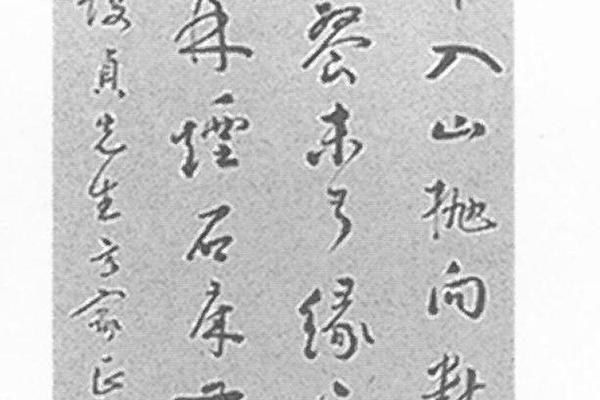 入山拋向
餐未了緣
煙石床
貞先生方家正